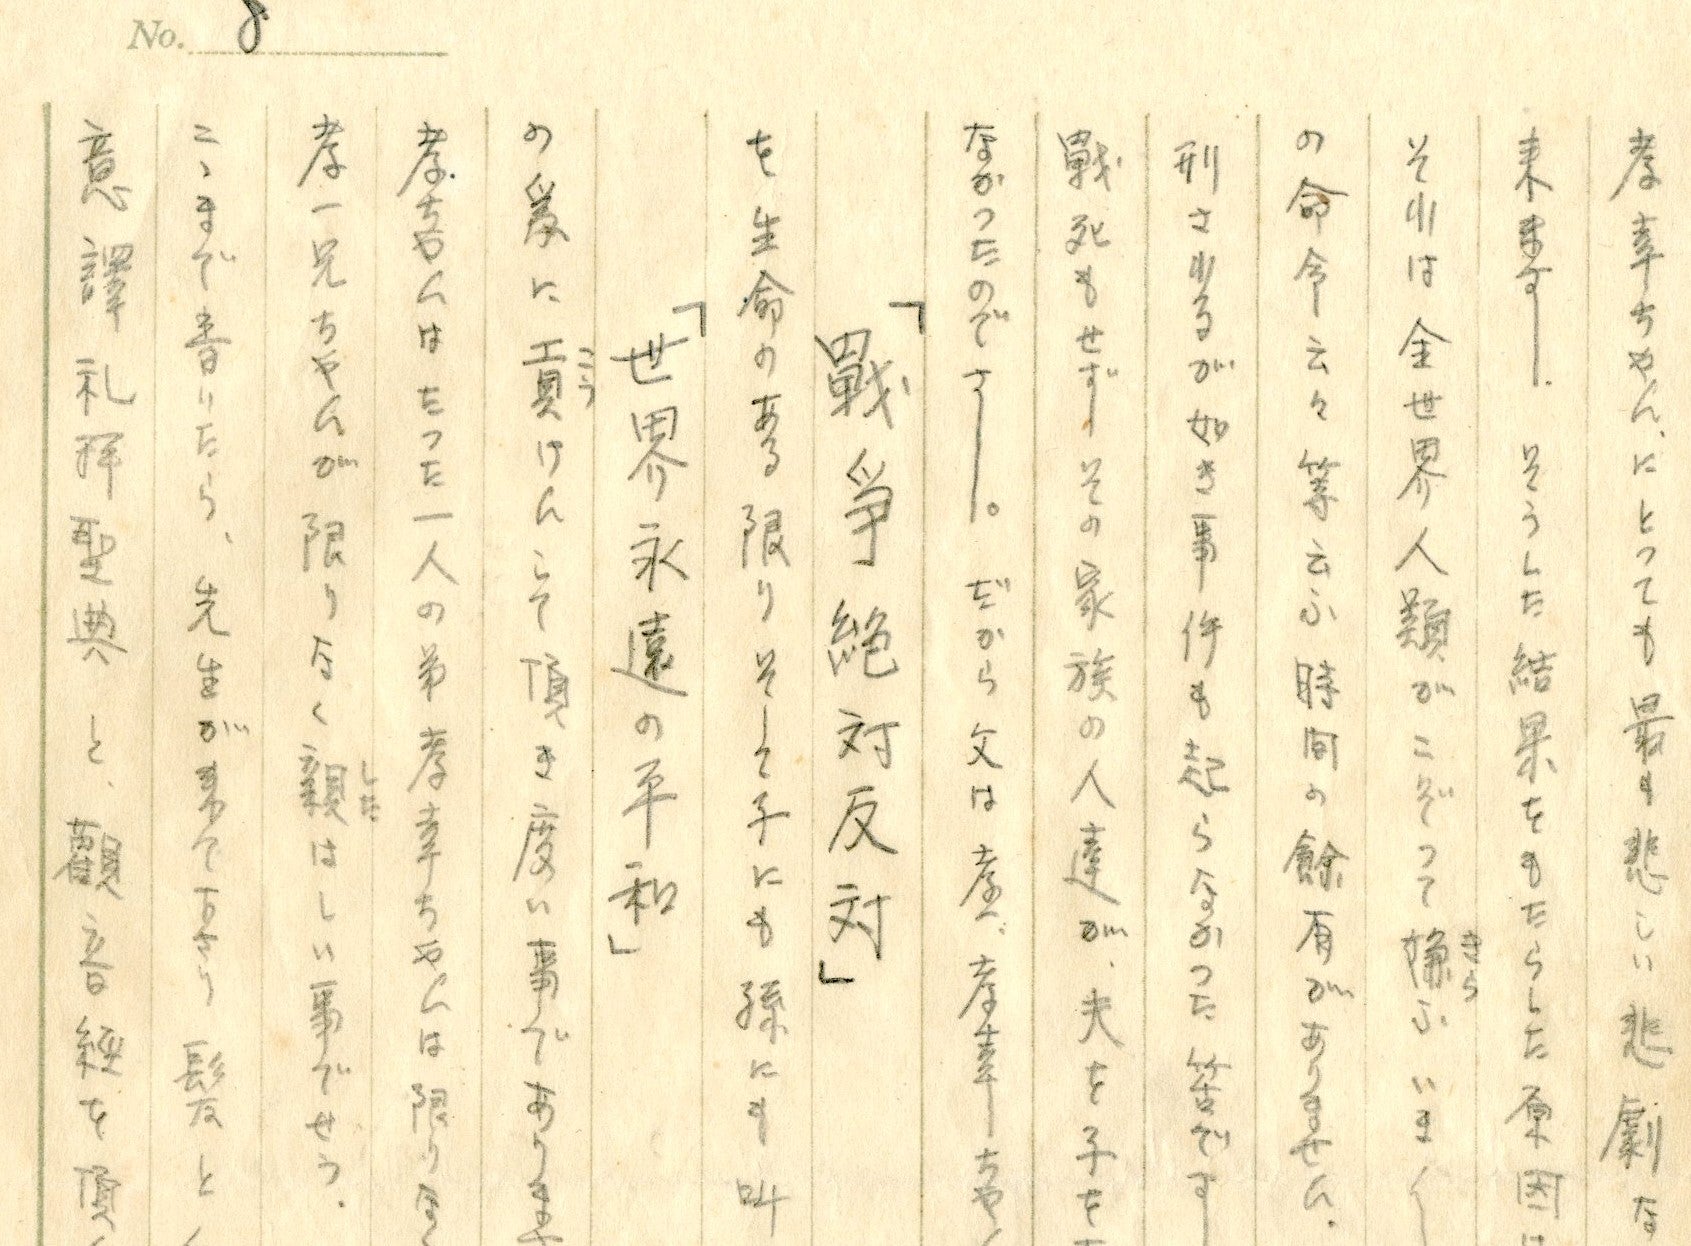 No. 8
孝幸ちやんにとつても最も悲しい悲劇な
来ますー. そうした結果をもたらした原因は
それは全世界人類がこぞつて嫌ふいま
きら
の命令云々等云ふ時間の餘有がありません.
刑されるが如き事件も起らなかつた筈ですー
戰死もせずーその家族の人達が、夫を子を
なかつたのですー。だから父は孝一、孝幸ーちや
「戰爭絶対反対」
を生命のある限りそして子にも孫にも叫
「世界永遠の平和」
の爲に貢けんして頂き度い事でありませ
こう
孝ちやんはたつた一人の弟孝幸ちやんは限りな
孝一兄ちやんが限りなく親はしい事でせう.
した
こゝまで書いたら、先生が来ておさり髪と
意譯礼拝聖典と、觀音経を頂